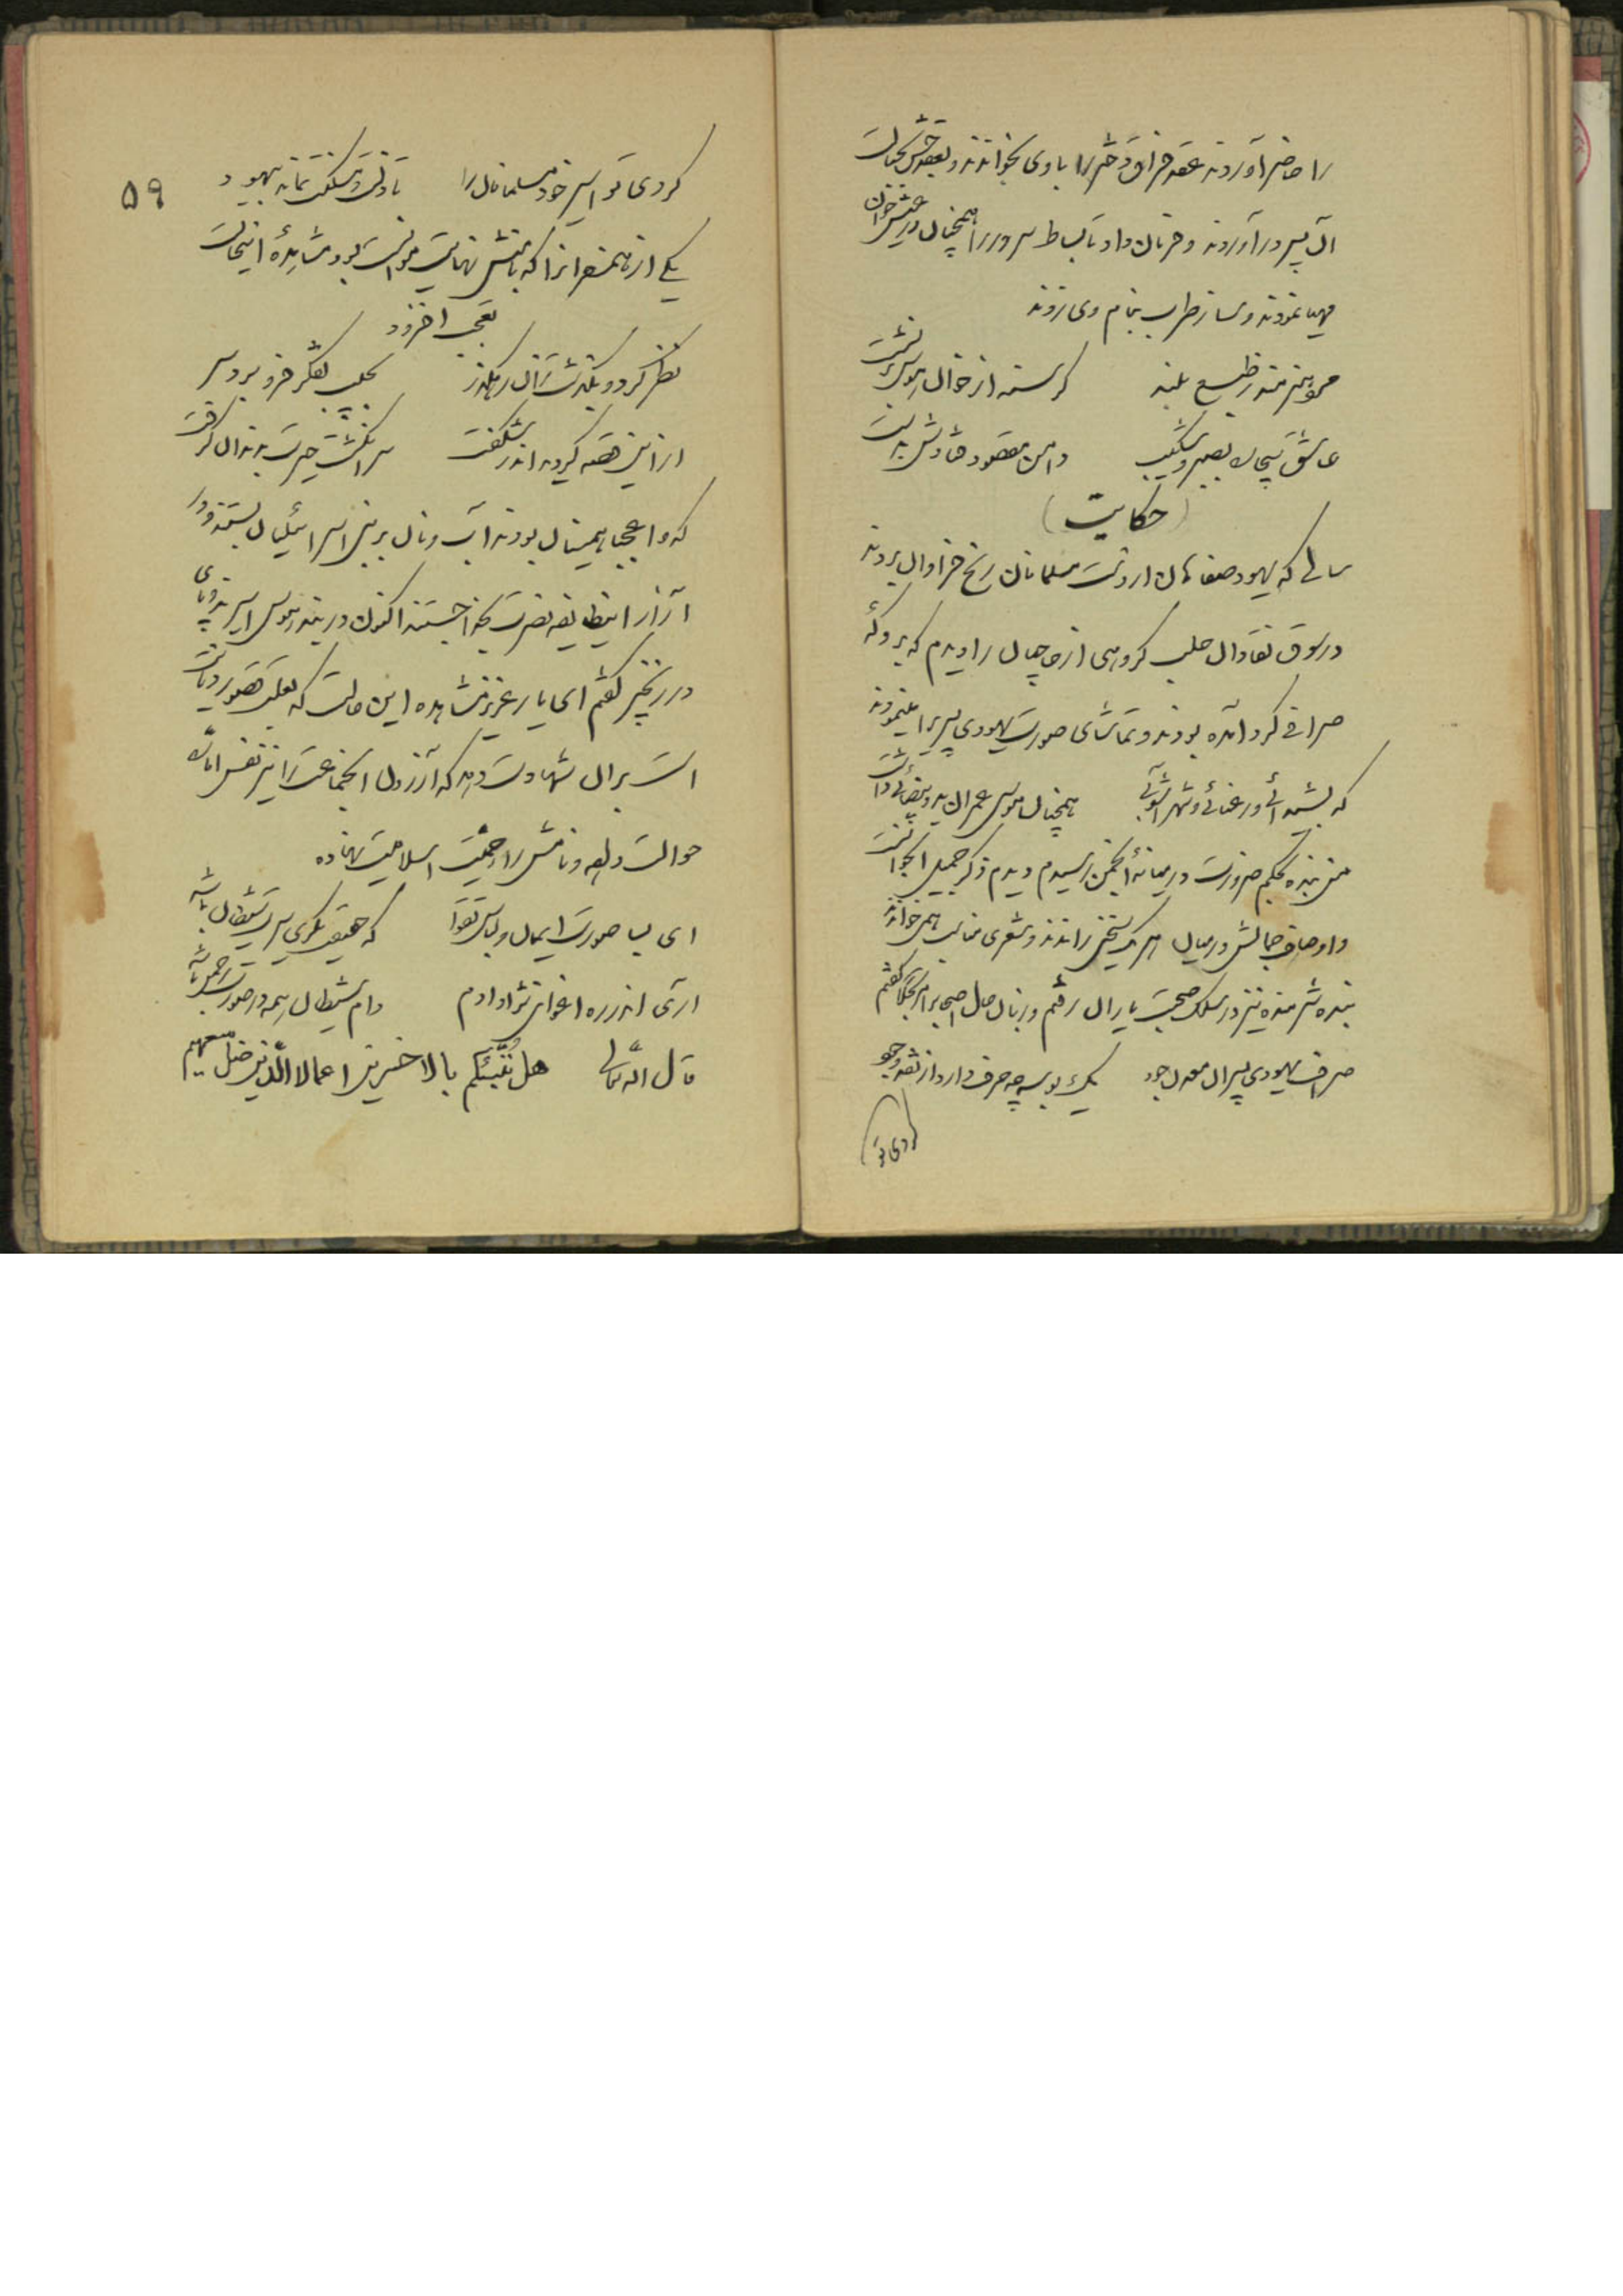 را حاضر آوردند عقد فراق دختر را با وی بخواندند و بعقدش
آن پسر در آوردند و فرمان داد تا بساط سرور را همچنان در پیش
مهیا نمودند و ساز طرب بنام وی زدند
مرد هنرمند ز طبع بلند گرسنه از خوان هوس برنشست
عاشق بیچاره بصبر و شکیب دامن مقصود فتادش بدست
(حکایت)
سالی که یهود صفاهان از دست مسلمانان رنج فراوان بردند
در سوق نقادان حلب گروهی از حاجیان را دیدم که بر دکه
صرافی گرد آمده بودند و تماشای صورت یهودی پسر را مینمودند
که بشیدائی و رعنائی و شهرآشوبی همچنان موسی عمران ید و بیضائی داشت
من بنده بحکم ضرورت در میانهٔ انجمن رسیدم دیدم ذکر جمیل
و اوصاف جمالش در میان هر یک سخنی راندند و شعری مناسب همی خواندند
بنده شرمنده نیز در سلک صحبت یاران رفتم و زبان حال اصحاب را گفتم
صراف یهودی پسر آن معدن جود یک بوسه چه صرف دارد از نقد وجود
کردی تو
۵۹
کردی تو اسیر خود مسلمانان را تا ذلت و مسکنت نماند بیهود
یکی از همسفران را که با منش نهایت موانست بود مشاهدهٔ اینحالت
تعجب افزود
نظر کرد و بگذشت زان رهگذر بجیب تفکر فرو برد سر
از این قصه گردید اندر شگفت سر انگشت حیرت بدندان گرفت
که وا عجبا همینان بودند آب و نان بر بنی اسرائیلیان بستند و از
آزار اینطایفه نصرت بخدا جستند اکنون در بند هوس اسیرند و پای
در زنجیر گفتم ای یار عزیز مشاهده این حالت که بعکس تصور دیانت
است بر آن شهادت دهد که آزردن آنجماعت را نیز نفس اماره
حوالت دهد و نامش را حمیت اسلامیت نهاده
ای بسا صورت ایمان و لباس تقوا که حقیقت نگری سیرت شیطان باشد
آری اندر ره اغوای نژاد آدم دام شیطان همه در صورت رحمن باشد
قال الله تعالی هل ننبئکم بالاخسرین اعمالا الذین ضل سعیهم